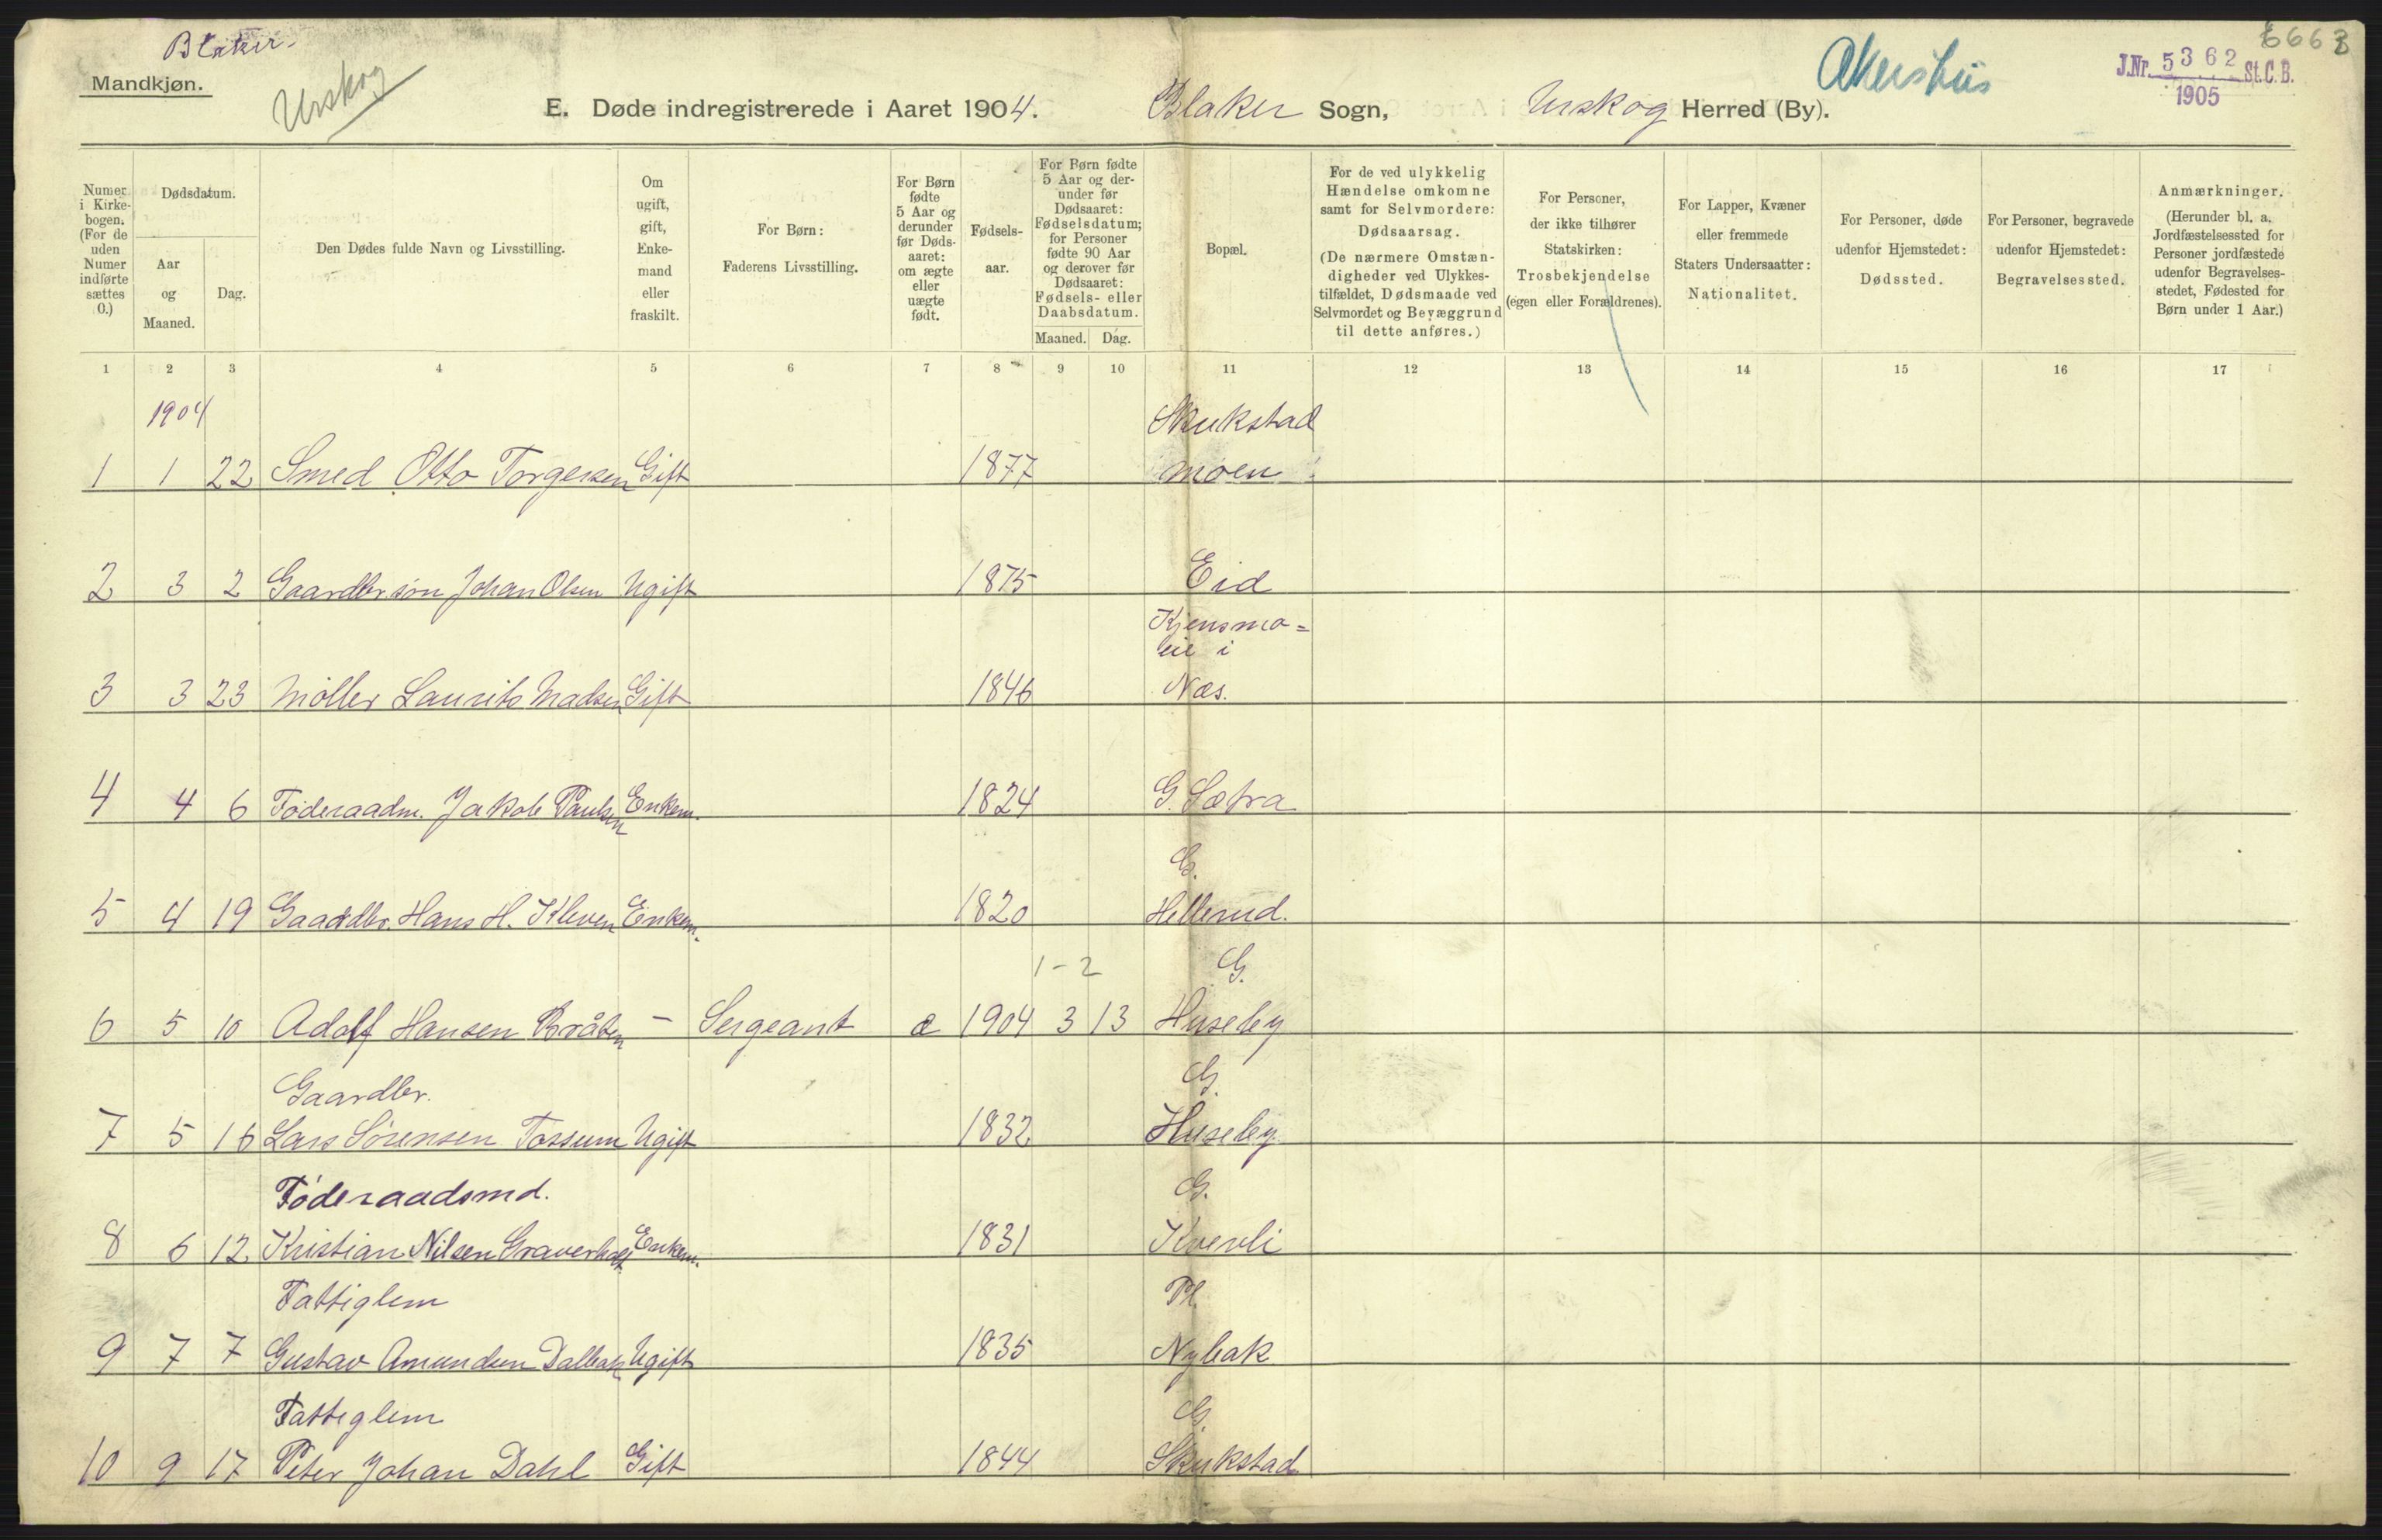 Blaker.
Mandkjøn.
Urskog
E. Døde indregistrerede i Aaret 1904. Blaker Sogn, Urskog Herred (By).
Akershus
J.Nr. 5362 St.C.B.
1905
Numer i Kirkebogen. (For de uden Numer indførte sættes 0.)
Dødsdatum.
Aar og Maaned.
Dag.
Den Dødes fulde Navn og Livsstilling.
Om ugift, gift, Enkemand eller fraskilt.
For Børn: Faderens Livsstilling.
For Børn fødte 5 Aar og derunder før Dødsaaret: om ægte eller uægte født.
Fødselsaar.
For Børn fødte 5 Aar og derunder før Dødsaaret: Fødselsdatum; for Personer fødte 90 Aar og derover før Dødsaaret: Fødsels- eller Daabsdatum.
Maaned. Dag.
Bopæl.
For de ved ulykkelig Hændelse omkomne samt for Selvmordere: Dødsaarsag.
(De nærmere Omstændigheder ved Ulykkestilfældet, Dødsmaade ved Selvmordet og Bevæggrund til dette anføres.)
For Personer, der ikke tilhører Statskirken: Trosbekjendelse (egen eller Forældrenes).
For Lapper, Kvæner eller fremmede Staters Undersaatter: Nationalitet.
For Personer, døde udenfor Hjemstedet: Dødssted.
For Personer, begravede udenfor Hjemstedet: Begravelsessted.
Anmærkninger.
(Herunder bl. a. Jordfæstelsessted for Personer jordfæstede udenfor Begravelsesstedet, Fødested for Børn under 1 Aar.)
1 2 3 4 5 6 7 8 9 10 11 12 13 14 15 16 17
1904 Skukstad
1 1 22 Smed Otto Torgersen Gift 1877 moen
2 3 2 Gaardbr.søn Johan Olsen Ugift 1875 Eid
Kjensmo=
eie i
3 3 23 Møller Laurits Madsen Gift 1846 Næs.
4 4 6 Føderaadm. Jakob Paulsen Enkem. 1824 G. Sætra
G.
5 4 19 Gaardbr. Hans H. Kleven Enkem. 1820 Hellerud.
1-2 G.
6 5 10 Adolf Hansen Bråten - Sergeant æ 1904 3 13 Huseby
Gaardbr. G.
7 5 16 Lars Sørensen Tossum Ugift 1832 Huseby
Føderaadsmd. G.
8 6 12 Kristian Nilsen Enkem. 1831 Kvevli
Fattiglem Pl.
9 7 7 Gustav Amundsen Dalbak Ugift 1835 Nybak
Fattiglem G.
10 9 17 Peter Johan Dahl Gift 1844 Skukstad